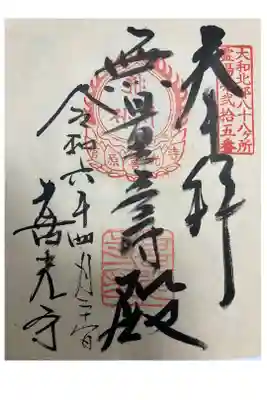 大和北部八十八ヶ所
霊場第弐拾五番
奉拝
無量壽殿
令和六年四月二十日
喜光寺